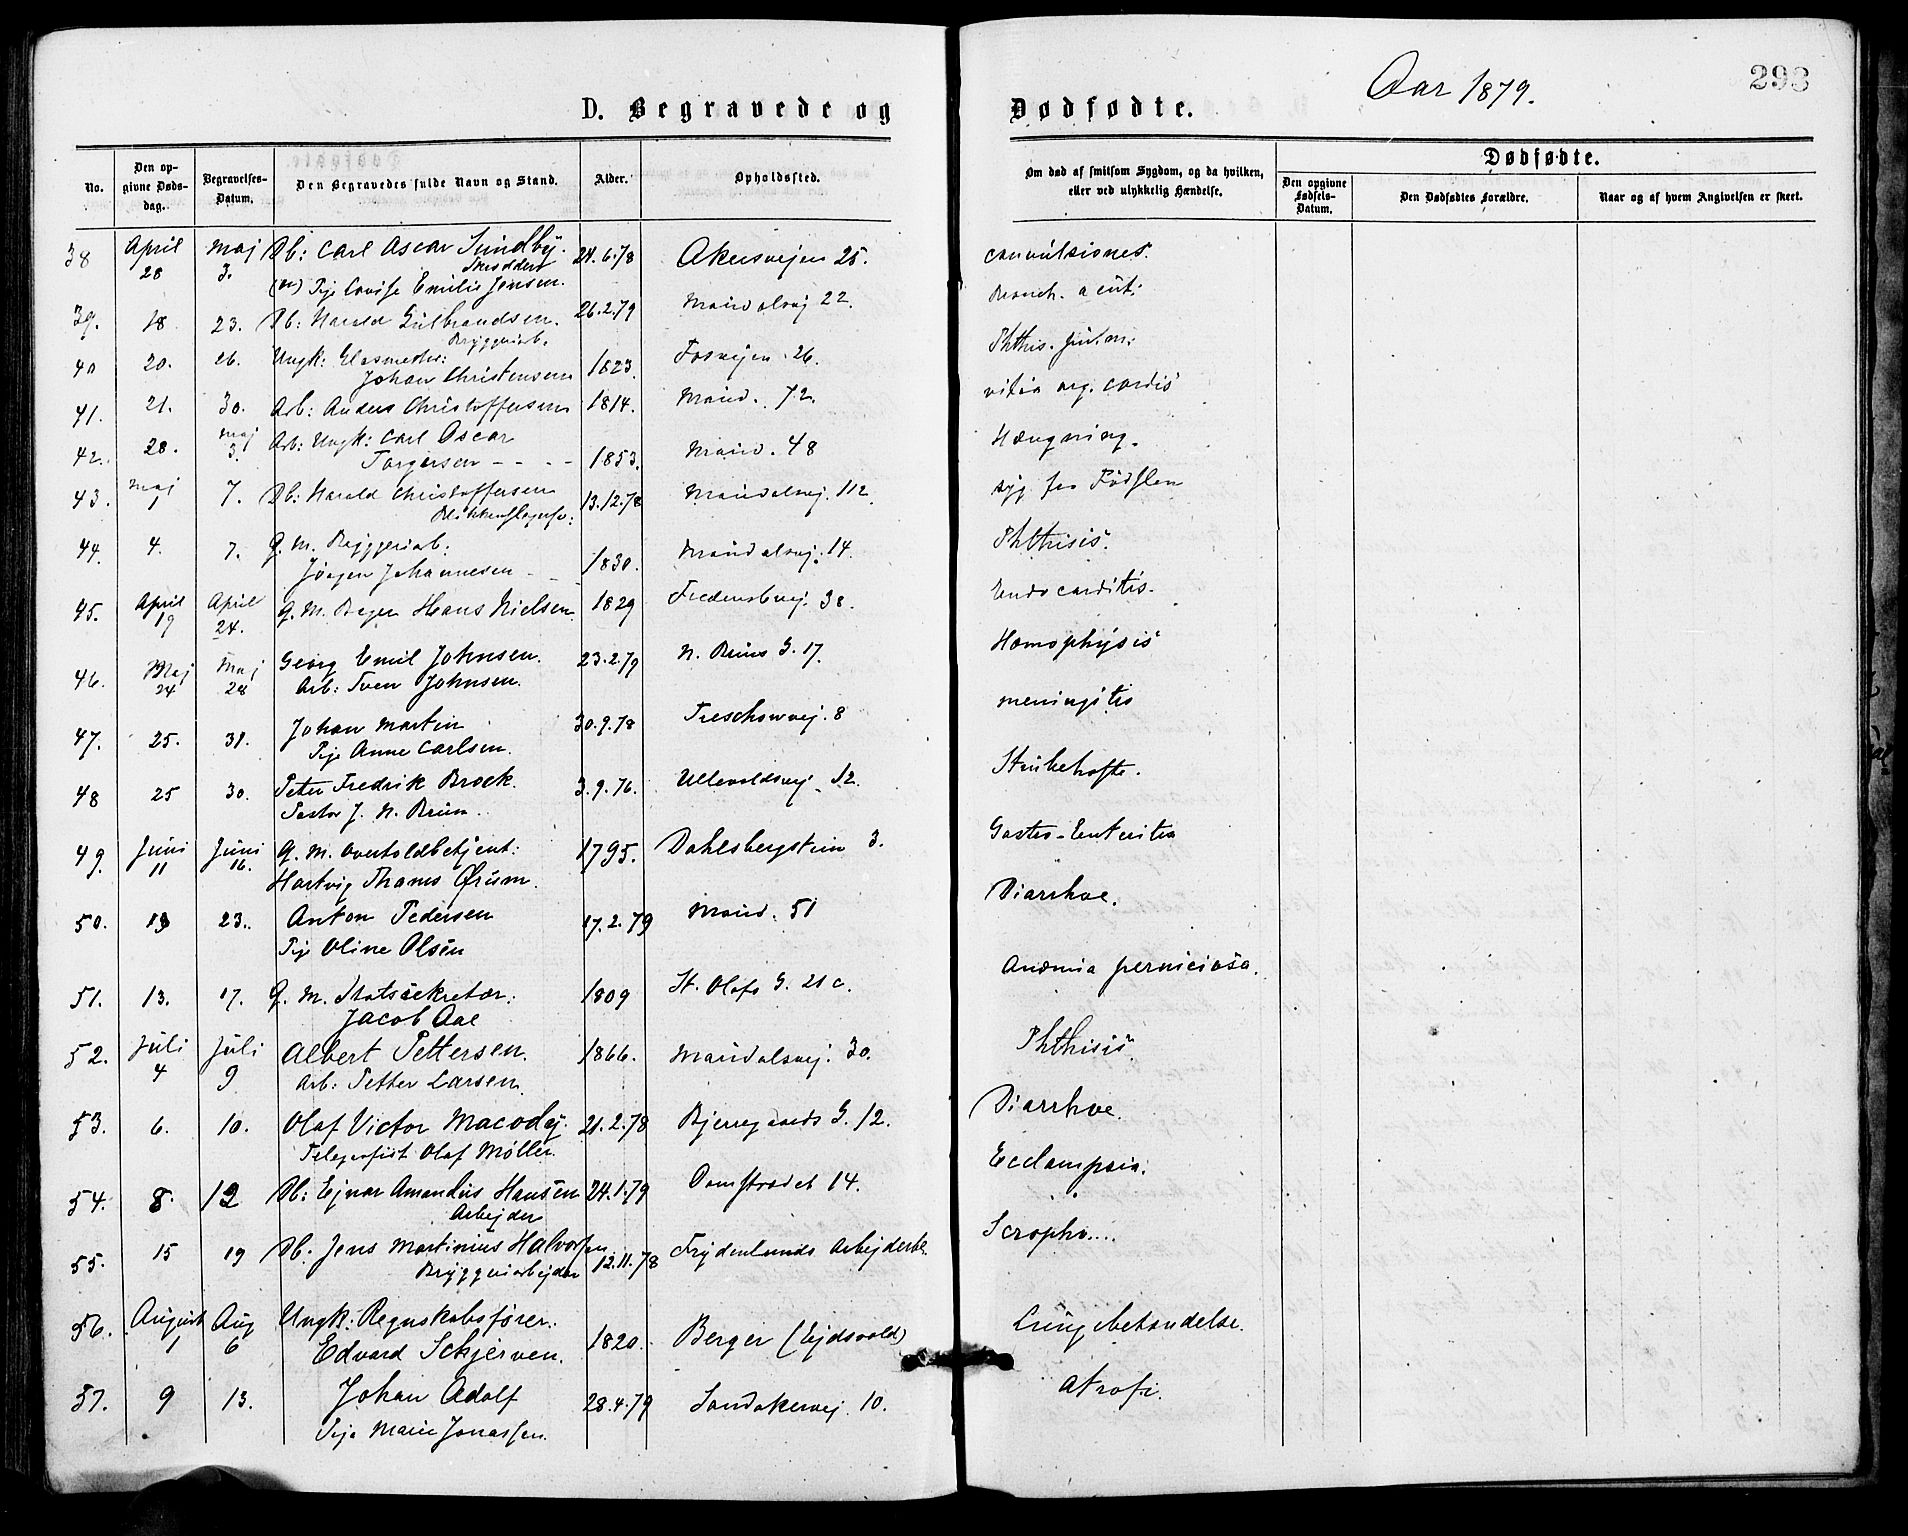 Aar 1879.
293
D. Begravede og Dødfødte.
No.
Den opgivne Dødsdag.
Begravelses-Datum.
Den Begravedes fulde Navn og Stand.
Alder.
Opholdssted.
Om død af smitsom Sygdom, og da hvilken, eller ved ulykkelig Hændelse.
Dødfødte.
Den opgivne Fødsels-Datum.
Den Dødfødtes Forældre.
Naar og af hvem Angivelsen er skeet.
38 April 28 Maj 3. Db: Carl Oscar Sundby. 24.6.78 Akersvejen 25. convulsiones.
Skrædder
(m) Pige Lovise Emilie Jensen.
39. 18 23. Db: Harald Gulbrandsen. 26.2.79 Maridalsvej 22. Bronch. acut:
Bryggeriarb.
40 20. 26. Ungk: Glasmester: 1823. Fosvejen 26. Phthis. pulm:
Johan Christensen
41. 21. 30. Arb: Anders Christoffersen 1814. Marid. 72. vitia org. cordis
42. 28. Maj 3. Arb: Ungk: Carl Oscar Marid. 48 Hængning.
Torgersen - - - - 1853.
43. Maj 1 7. Db: Harald Christoffersen 13.12.78 Maridalsvej. 112 syg fra Fødslen
Blikkenslagersv:
44. 4. 7. G. M. Bryggeriarb: 1830. Maridalsvej. 14. Phthisis.
Jørgen Johannesen - -
45. April 19 April 24. G. M. Bager Hans Nielsen 1829 Fredensbvej. 38. Endocarditis.
46. Maj 24 Maj 28 Georg Emil Johnsen. 23.2.79 N. Bruns G. 17. Hæmophysis
Arb: Sven Johnsen.
47. 25. 31. Johan Martin 30.9.78 Treschowvej. 8 meningitis
Pige Anne Carlsen.
48 25 30. Peter Fredrik Brock. 3.9.76. Ullevoldsvej. 12. Strubehoste.
Pastor J. N. Brun.
49. Juni 11 Juni 16. G. M. Overtoldbetjent: 1795. Dahlsbergstien 3. Gastro-Enteritis
Hartvig Thams Ørum.
50. 19 23. Anton Pedersen 17.2.79 Marid. 51 Diarrhoe.
Pige Oline Olsen
51. 13. 17. G. M. Statssekretær: 1809 St. Olafs G. 21 c. Anæmia perniciosa.
Jacob Aal
52. Juli 4 Juli 9 Albert Pettersen. 1866. Maridalsvej. 30. Phthisis.
Arb: Petter Larsen
53. 6. 10. Olaf Victor Macody. 21.2.78 Bjerregaards G. 12. Diarrhoe.
Telegrafist Olaf Møller.
54. 8. 12 Db: Ejnar Amandus Hansen 24.1.79 Damstrædet 14. Ecclampsia.
Arbejder
55. 15 19 Db: Jens Martinius Halvorsen 12.11.78 Frydenlunds Arbejderbo. Scroph....
Bryggeriarbejder
56. August 1 Aug 6 Ungk: Regnskabsfører: 1820. Berger (Ejdsvold) Lungebetændelse.
Edvard Schjerven.
57. 9 13. Johan Adolf 28.4.79 Sandakervej. 10. Atrofi.
Pige Marie Jonassen.